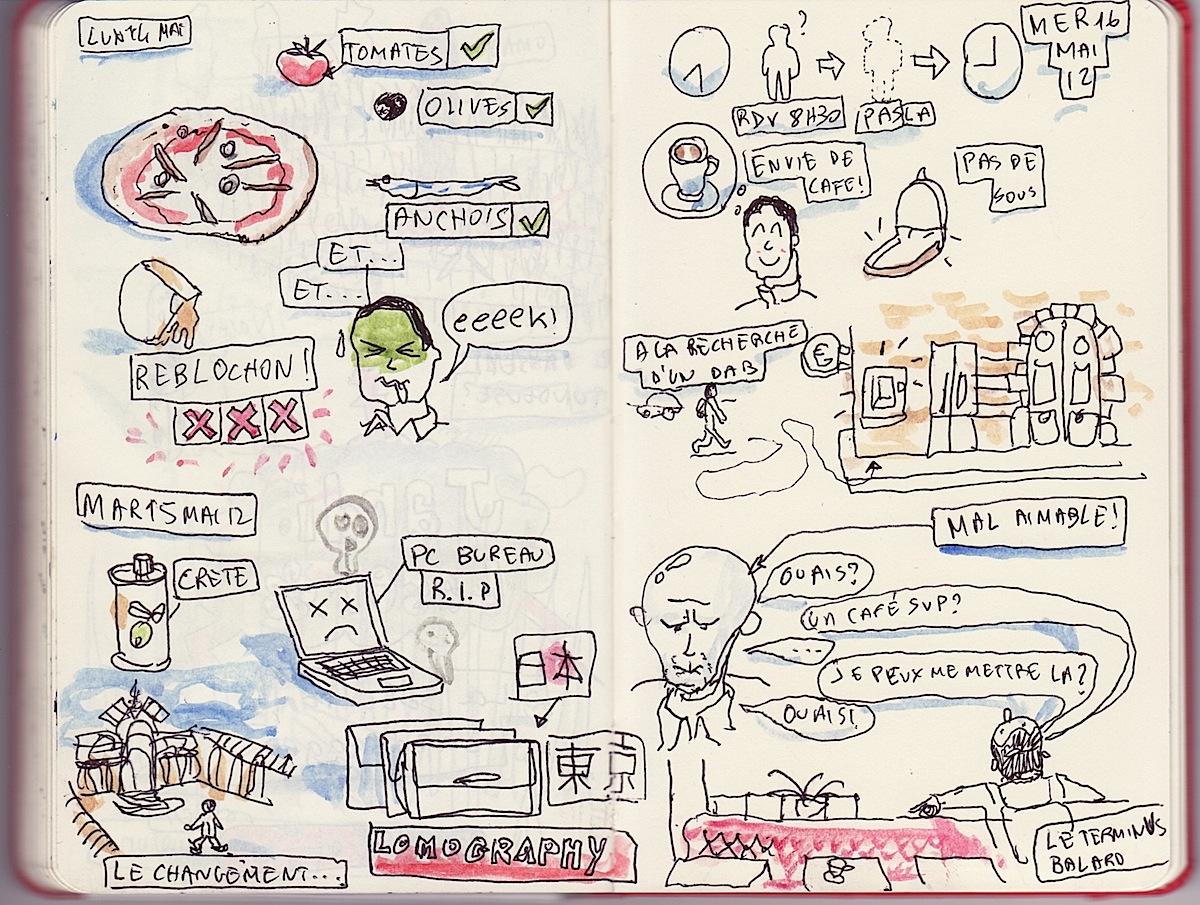 LUN14 MAI
TOMATES
OLIVES
ANCHOIS
ET...
ET...
eeeek!
REBLOCHON!
MAR15 MAI 12
CRÈTE
PC BUREAU
R.I.P
日本
東京
LOMOGRAPHY
LE CHANGEMENT...
MER 16
MAI
12
?
RDV 8H30
PAS LA
ENVIE DE
CAFE!
PAS DE
SOUS
A LA RECHERCHE
D'UN DAB
€
MAL AIMABLE!
OUAIS?
UN CAFÉ SVP?
...
JE PEUX ME METTRE LA?
OUAIS!
LE TERMINUS
BALARD